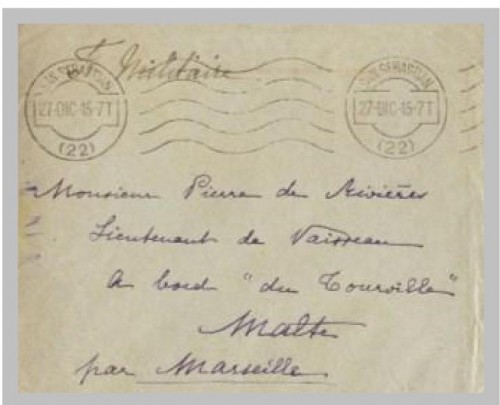 F. Militaire
SAN SEBASTIAN
27·DIC·15·7T
(22)
SAN SEBASTIAN
27·DIC·15·7T
(22)
Monsieur Pierre de Rivières
Lieutenant de Vaisseau
à bord "du Tourville"
Malte
par Marseille